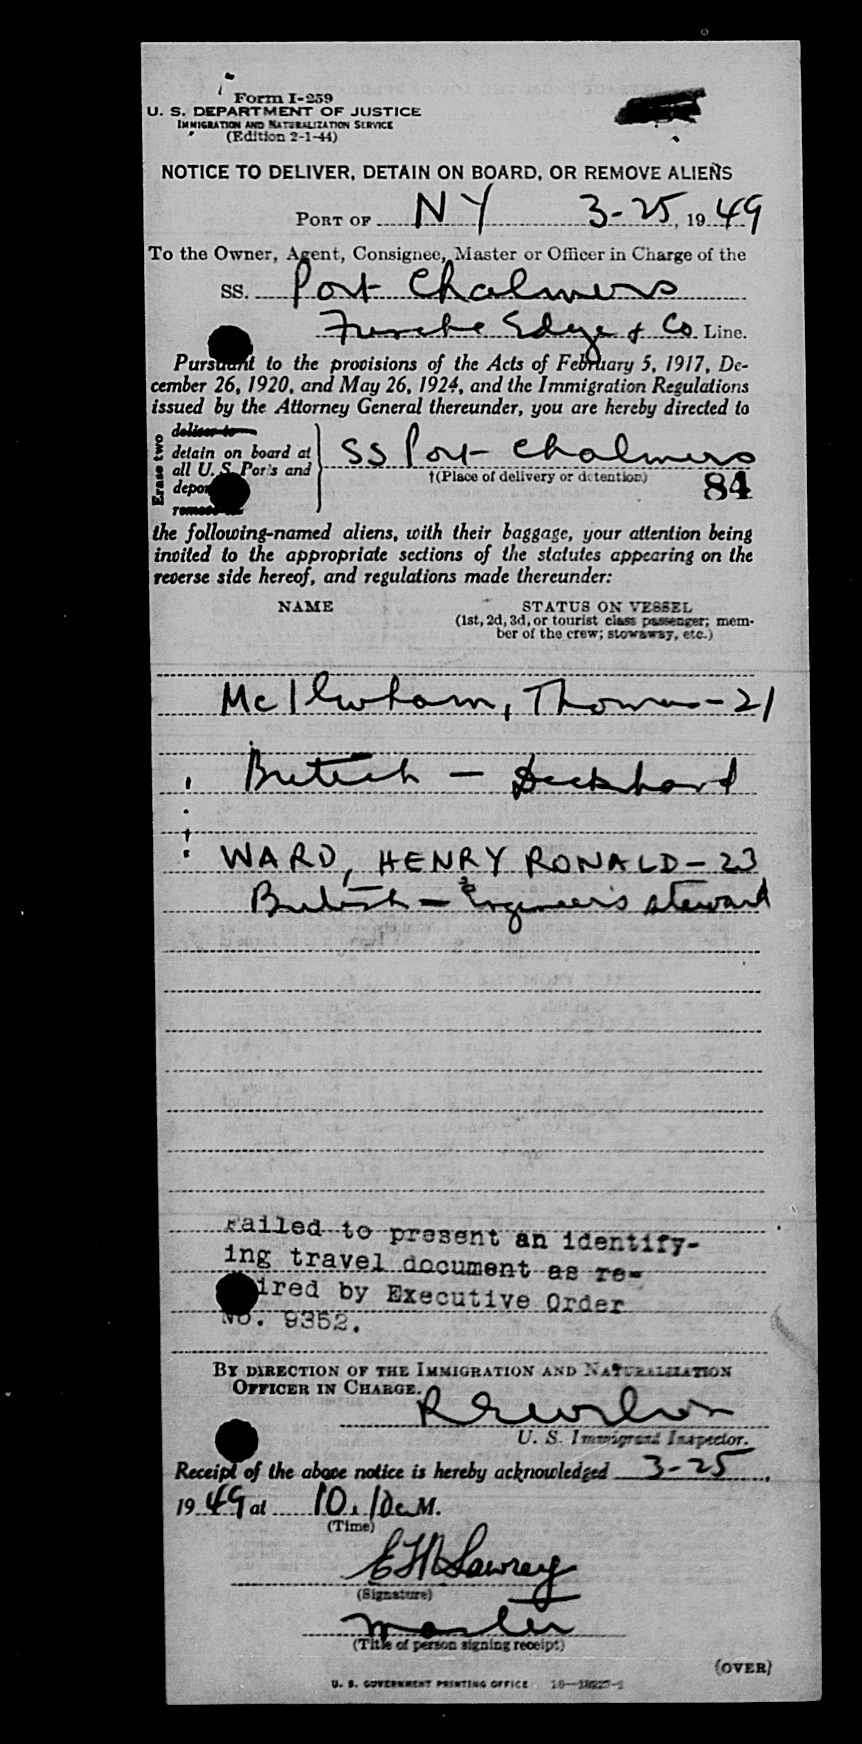 Form I-259
U. S. DEPARTMENT OF JUSTICE
IMMIGRATION AND NATURALIZATION SERVICE
(Edition 2-1-44)
NOTICE TO DELIVER, DETAIN ON BOARD, OR REMOVE ALIENS
PORT OF NY 3-25, 1949
To the Owner, Agent, Consignee, Master or Officer in Charge of the
SS. Port Chalmers
Edye & Co Line.
Pursuant to the provisions of the Acts of February 5, 1917, De-
cember 26, 1920, and May 26, 1924, and the Immigration Regulations
issued by the Attorney General thereunder, you are hereby directed to
Erase two
deliver to
detain on board at
all U. S. Por's and
depor
remove to
SS Port Chalmers
†(Place of delivery or detention)
84
the following-named aliens, with their baggage, your attention being
invited to the appropriate sections of the statutes appearing on the
reverse side hereof, and regulations made thereunder:
NAME STATUS ON VESSEL
(1st, 2d, 3d, or tourist class passenger; mem-
ber of the crew; stowaway, etc.)
McIlwham, Thomas - 21
British - Deckhand
WARD, HENRY RONALD - 23
British - Engineer's steward
Failed to present an identify-
ing travel document as re-
ired by Executive Order
No. 9352.
BY DIRECTION OF THE IMMIGRATION AND NATURALIZATION
OFFICER IN CHARGE.
U. S. Immigrant Inspector.
Receipt of the above notice is hereby acknowledged 3-25,
1949 at 10.10a M.
(Time)
Lawrey
(Signature)
master
(Title of person signing receipt)
(OVER)
U. S. GOVERNMENT PRINTING OFFICE